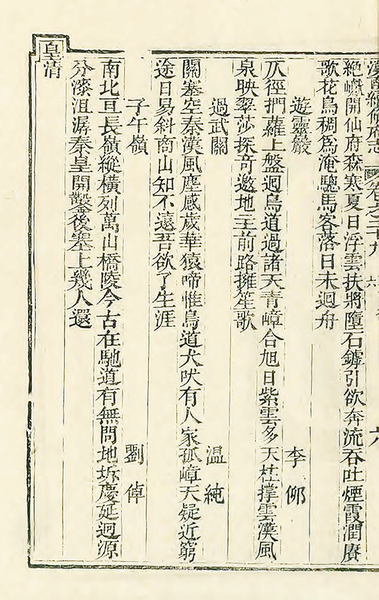 漢南續修府志 卷之二十九 六
絕巘開仙府森寒夏日浮雲扶將墮石罅引欲奔流吞吐煙霞潤賡
歌花鳥稠為淹驄馬客落日未迴舟
遊靈巖 李
仄徑捫蘿上盤迴鳥道過諸天青嶂合旭日紫雲多天柱撐雲漢風
泉映翠莎探奇邀地主前路擁笙歌
過武關 温純
關塞空秦漢風塵感歲華猿啼惟鳥道犬吠有人家孤嶂天疑近窮
途日易斜南山知不遠吾欲了生涯
子午嶺 劉倬
南北亘長嶺縱橫列萬山橋陵今古在馳道有無問地坼慶延迥源
分漆沮潺秦皇開鑿後塞上幾人還
皇清